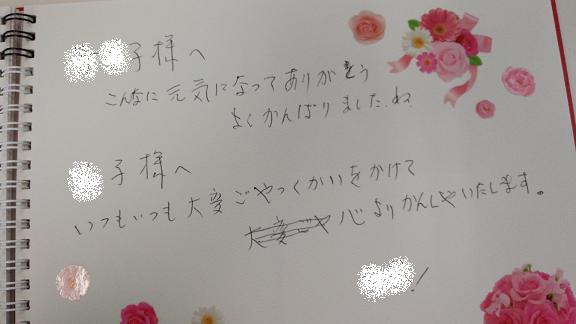 子様へ
こんなに元気になってありがとう
よくがんばりましたね
子様へ
いつもいつも大変ごやっくかいをかけて
心よりかんしゃいたします。
!